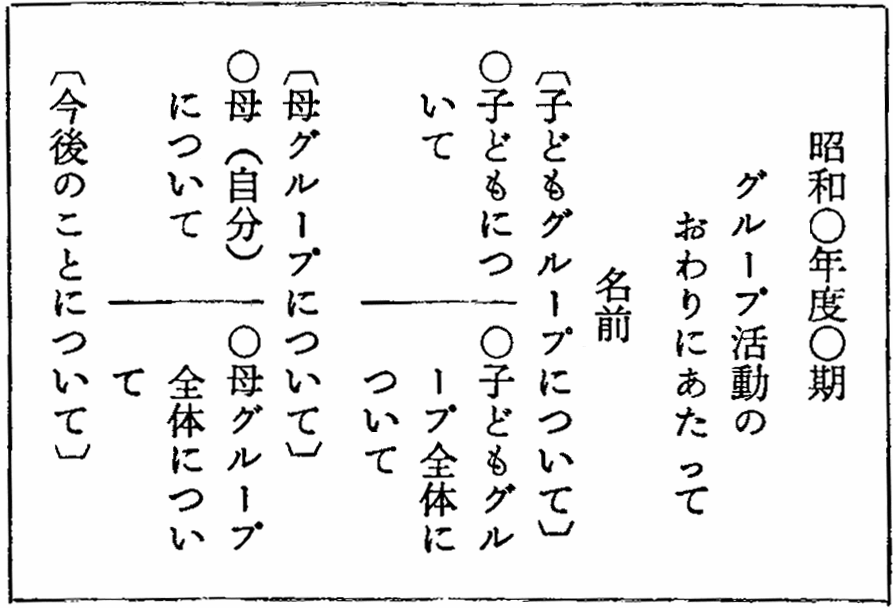 昭和○年度○期
グループ活動の
おわりにあたって
名前
〔子どもグループについて〕
○子どもにつ
いて
○子どもグル
ープ全体に
ついて
〔母グループについて〕
○母(自分)
について
○母グループ
全体につい
て
〔今後のことについて〕